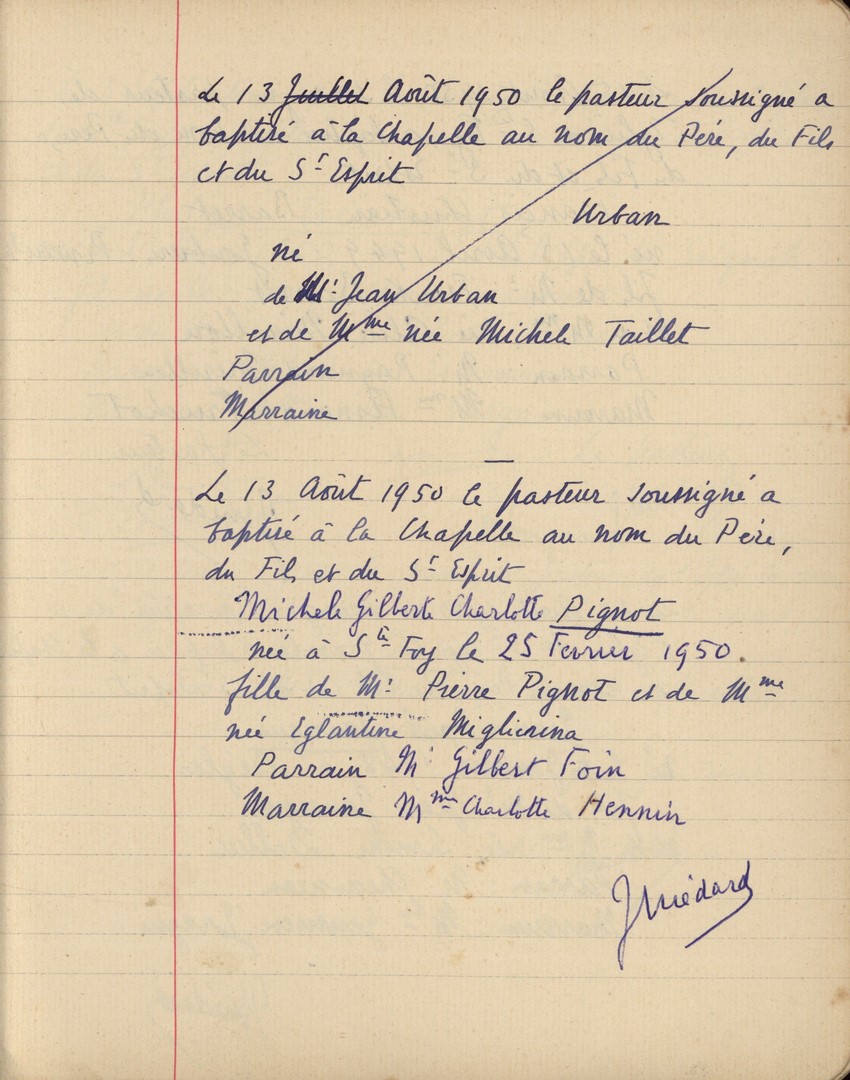 Le 13 Juillet Août 1950 le pasteur soussigné a
baptisé à la Chapelle au nom du Père, du Fils
et du St Esprit
Urban
né
de Mr Jean Urban
et de Mme née Michele Taillet
Parrain
Marraine
Le 13 Août 1950 le pasteur soussigné a
baptisé à la Chapelle au nom du Père,
du Fils et du St Esprit
Michele Gilberte Charlotte Pignot
née à Ste Foy le 25 Fevrier 1950.
fille de Mr Pierre Pignot et de Mme
née Eglantine Migliorina
Parrain Mr Gilbert Foin
Marraine Mme Charlotte Hennin
J Médard